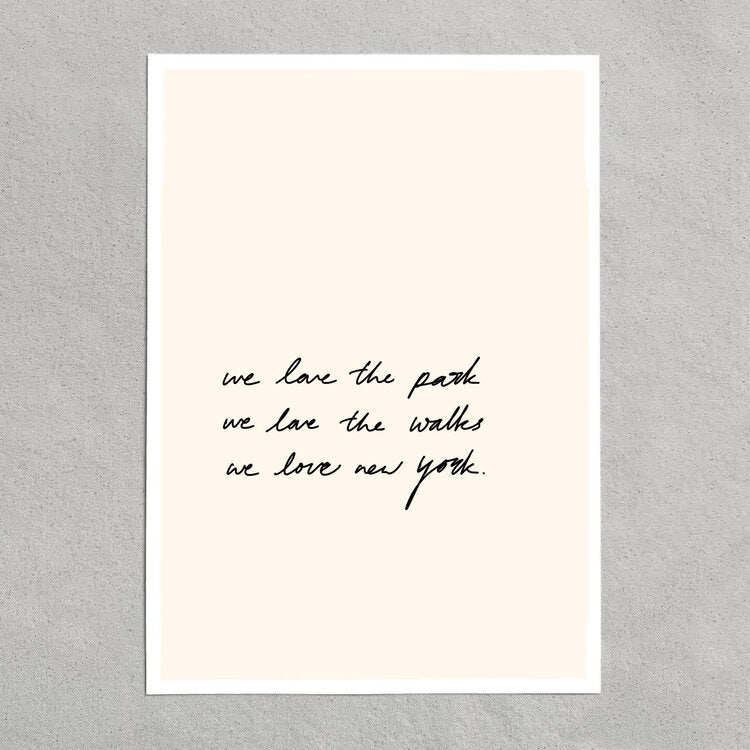 we love the park
we love the walks
we love new york.